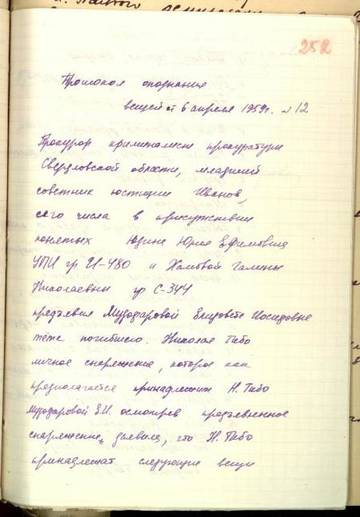 252
Протокол опознания
вещей от 6 апреля 1959г. л 12
Прокурор криминалист прокуратуры
Свердловской области, младший
советник юстиции Иванов,
сего числа в присутствии
понятых Юдина Юрия Ефимовича
УПИ гр И-480 и Галины
Николаевны гр С-344
предъявил Елизавете Иосифовне
тете погибшего Николая Тибо
личное снаряжение, которое как
предполагается принадлежит Н. Тибо
Е.И. осмотрев предъявленное
снаряжение, заявила, что Н. Тибо
принадлежат следующие вещи